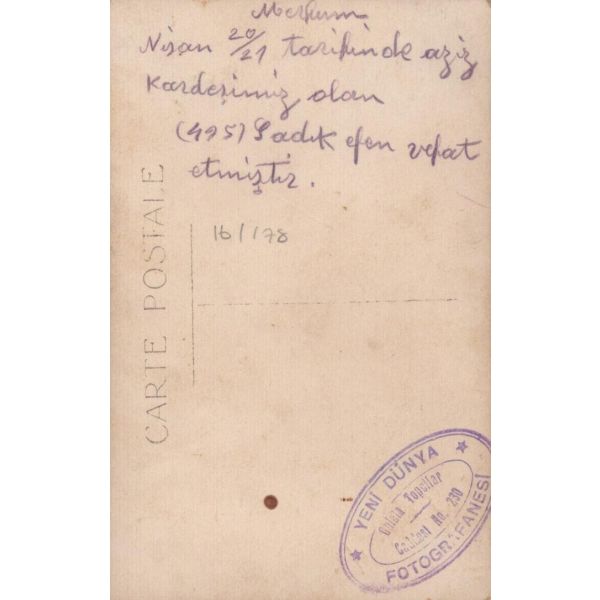 Merhum
Nisan 20/21 tarihinde aziz
Kardeşimiz olan
(495) Sadık efen vefat
etmiştir.
16/178
CARTE POSTALE
YENİ DÜNYA
Galata Topçular
Caddesi No. 230
FOTOGRAFANESİ